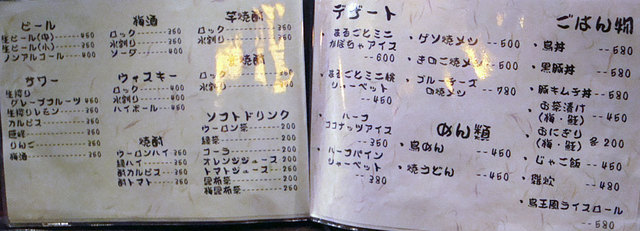 ビール
生ビール(中)----460
生ビール(小)----360
ノンアルコール---460
サワー
生搾り
グレープフルーツ 460
生搾りレモン----360
カルピス----360
巨峰----360
りんご----360
梅酒----360
梅酒
ロック----360
水割り----360
ソーダ----460
ウィスキー
ロック----400
水割り----360
ハイボール----460
焼酎
ウーロンハイ---360
緑ハイ----360
酎カルピス---360
酎トマト----360
芋焼酎
ロック----360
水割り----360
焼酎
ロック----360
水割り----360
ソフトドリンク
ウーロン茶----200
緑茶----200
コーラ----200
オレンジジュース 260
トマトジュース--260
昆布茶----260
梅昆布茶----260
デザート
・まるごとミニ
かぼちゃアイス
--600
・まるごとミニ桃
シャーベット
--450
・ハーフ
ココナッツアイス
--350
・ハーフパイン
シャーベット
--380
・ゲソ焼メシ--500
・きのこ焼メシ--500
・ブルーチーズ
の焼メシ--780
めん類
・鳥めん--450
・焼うどん--450
ごはん物
・鳥丼--580
・黒豚丼--580
・豚キムチ丼--580
・お茶漬け
(梅・鮭)--450
・おにぎり
(梅・鮭)各200
・じゃこ飯--450
・雑炊--480
・鳥王風ライスロール
--580